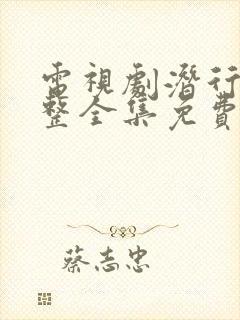 電視劇潛行
整全集免費
蔡志忠